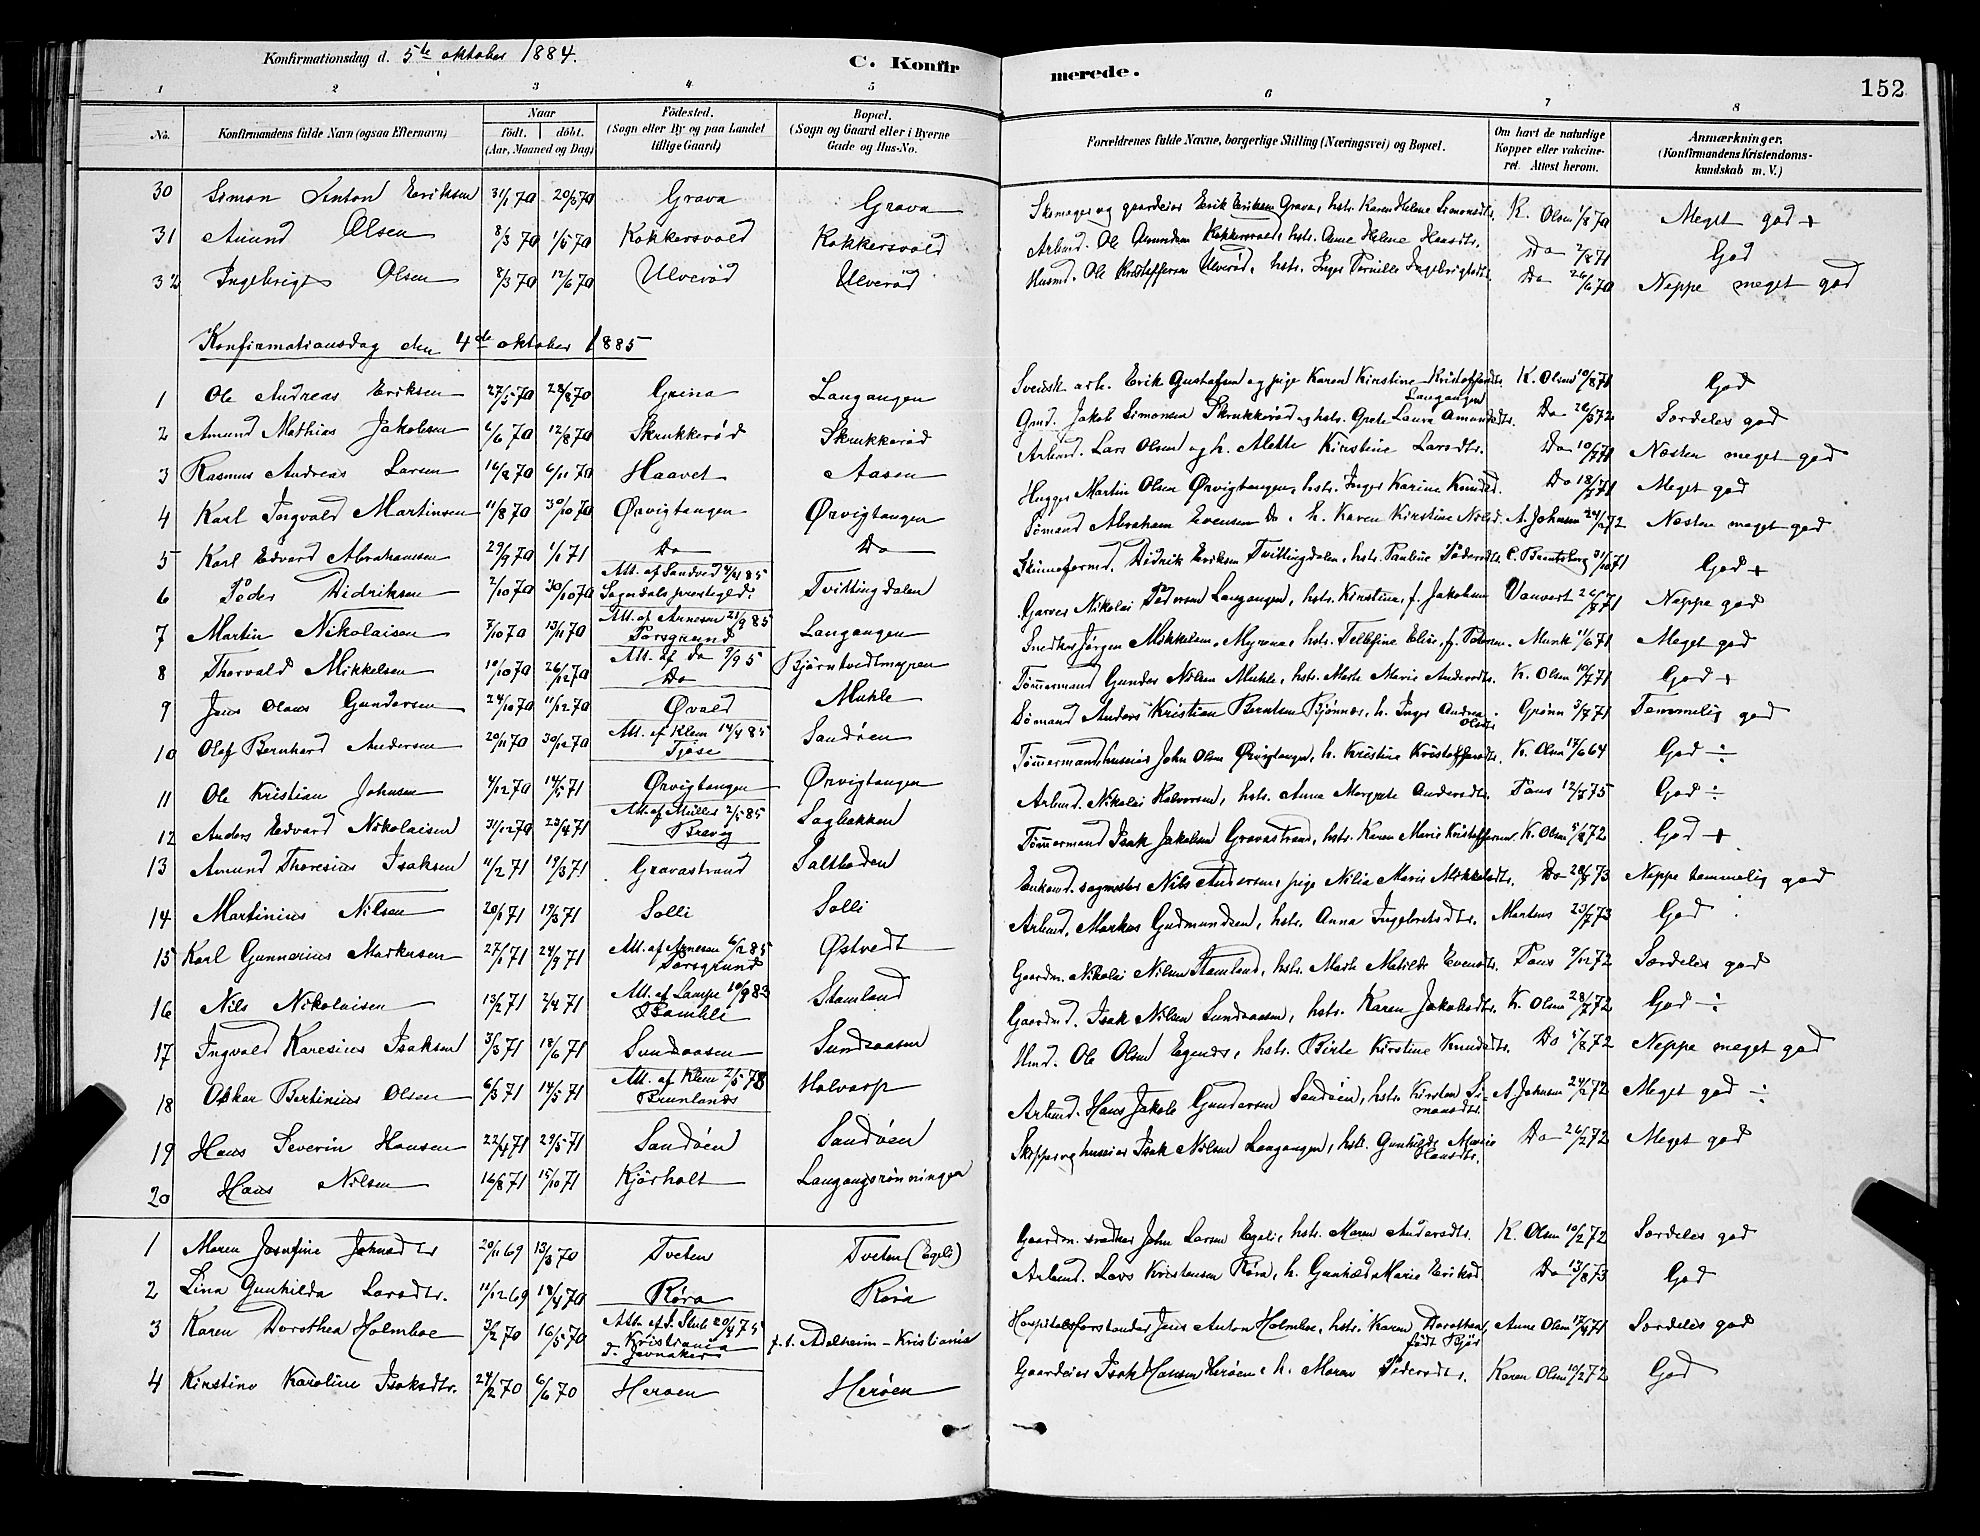 Konfirmationsdag d. 5te oktober 1884.
C. Konfirmerede.
152
1 2 3 4 5 6 7 8
No.
Konfirmandens fulde Navn (ogsaa Efternavn)
Naar
födt. döbt.
(Aar, Maaned og Dag)
Födested.
(Sogn eller By og paa Landet
tillige Gaard)
Bopæl.
(Sogn og Gaard eller i Byerne
Gade og Hus-No.
Forældrenes fulde Navne, borgerlige Stilling (Næringsvei) og Bopæl.
Om havt de naturlige
Kopper eller vakcine-
ret. Attest herom.
Anmærkninger.
(Konfirmandens Kristendoms-
kundskab m. V.)
30 Simon Anton Eriksen 31/1 70 20/3 70 Grava Grava Skomager og gaardeier Erik Eriksen Grava, hstr. Karen Helene Simonsdtr. K. Olsen 1/8 70 Meget god +
31 Amund Olsen 8/3 70 1/5 70 Kokkersvold Kokkersvold Arbmd. Ole Amundsen Kokkersvold, hstr. Anne Helene Hansdtr. Do 2/8 71 God
32 Ingebrigt Olsen 8/3 70 12/6 70 Ulverød Ulverød Husmd. Ole Kristoffersen Ulverød, hstr. Inger Pernille Ingebrigtsdtr. Do 26/6 70 Neppe meget god
Konfirmationsdag den 4de oktober 1885
1 Ole Andreas Eriksen 27/5 70 28/8 70 Grina Langangen Svensk arb. Erik Gustafsen og pige Karen Kirstine Kristoffersdtr. Langangen K. Olsen 10/8 71 God
2 Amund Mathias Jakobsen 6/6 70 12/8 70 Skrukkerød Skrukkerød Gmd. Jakob Simonsen Skrukkerød og hstr. Grete Laura Amundsdtr. Do 26/3 72 Særdeles god
3 Rasmus Andreas Larsen 16/8 70 6/11 70 Haavet Aasen Arbmd. Lars Olsen og h. Alette Kirstine Larsdtr. Do 10/7 71 Næsten meget god
4 Karl Ingvald Martinsen 11/8 70 30/10 70 Ørvigtangen Ørvigtangen Hugger Martin Olsen Ørvigtangen, hstr. Inger Karine Knudsd. Do 18/7 71 Meget god
5 Karl Edvard Abrahamsen 29/9 70 1/1 71 Do Do Sømand Abraham Evensen Do, h. Karen Kirstine Nilsd. A. Johnsen 24/2 72 Næsten meget god
6 Peder Didriksen 2/10 70 30/10 70 Att. af Sandved 4/4 85 Sogndals prestegjeld. Tvittingdalen Skinneformd. Didrik Eriksen Tvittingdalen, hstr. Pauline Pedersdtr. C. Berntsberg 31/10 71 God +
7 Martin Nikolaisen 7/10 70 13/11 70 Att. af Arnesen 21/9 85 Porsgrund Langangen Garver Nikolai Pedersen Langangen, hstr. Kirstine, f. Jakobsen Vauvert 26/8 71 Neppe god
8 Thorvald Mikkelsen 10/10 70 26/12 70 Att. af do 9/9 5 Do Bjørntvedtmyren Snedker Jørgen Mikkelsen, Myrene, hstr. Tellefine Elise, f. Petersen. Munk 11/6 71 Meget god
9 Jens Olaus Gundersen 24/10 70 11/12 70 Øvald Muhle Tømmermand Gunder Nilsen Muhle, hstr. Marte Marie Andersdtr. K. Olsen 10/7 71 God +
10 Olaf Bernhard Andersen 20/11 70 30/12 70 Att. af Klem 14/4 85 Tjøse Sandøen Sømand Anders Kristian Berntsen Bjønnes, h. Inger Andrea Olsdtr. Grønn 3/7 71 Temmelig god
11 Ole Kristian Johnsen 4/12 70 14/5 71 Ørvigtangen Ørvigtangen Tømmermand, huseier John Olsen Ørvigtangen, h. Kristine Kristoffersdtr. K. Olsen 17/6 64 God ÷
12 Anders Edvard Nikolaisen 31/12 70 23/4 71 Att. af Müller 2/5 85 Brevig Sagbakken Arbmd. Nikolai Halvorsen, hstr. Anne Margrete Andersdtr. Paus 12/3 75 God ÷
13 Amund Thoresius Isaksen 11/2 71 19/3 71 Gravastrand Saltboden Tømmermand Isak Jakobsen Gravastrand, hstr. Karen Marie Kristoffersen K. Olsen 5/8 72 God +
14 Martinius Nilsen 20/1 71 19/3 71 Solli Solli Enkemd. sagmester Nils Andersen, pige Nilia Marie Mikkelsdtr. Do 28/7 73 Neppe temmelig god
15 Karl Gunnerius Markusen 27/1 71 24/9 71 Att. af Arnesen 6/2 85 Porsgrund Østvedt Arbmd. Markus Gudmundsen, hstr. Anna Ingebretsdtr. Martens 23/7 73 God
16 Nils Nikolaisen 13/2 71 2/4 71 Att. af Lampe 10/9 83 Bamble Stamland Gaardm. Nikolai Nilsen Stamland, hstr. Marte Matilde Evensdtr. Paus 9/12 72 Særdeles god
17 Ingvald Karesius Isaksen 3/3 71 18/6 71 Sundsaasen Sundsaasen Gaardmd. Isak Nilsen Sundsaasen, hstr. Karen Jakobsdtr. K. Olsen 28/7 72 God ÷
18 Oskar Bertinius Olsen 6/3 71 14/5 71 Att. af Klem 2/5 78 Brunlanes Halvarp Hmd. Ole Olsen Egenes, hstr. Birte Kirstine Knudsdtr. Do 5/8 72 Neppe meget god
19 Hans Severin Hansen 22/4 71 29/5 71 Sandøen Sandøen Arbmd. Hans Jakob Gundersen Sandøen, hstr. Kirsten Simonsdtr. A Johnsen 24/2 72 Meget god ÷
20 Hans Nilsen 16/8 71 15/10 71 Kjørholt Langangsrønningen Skipper og huseier Isak Nilsen Langangen, hstr. Gunhilde Marie Hansdtr. Do 26/2 72 Meget god
1 Maren Josefine Johnsdtr 20/11 69 13/3 70 Tveten Tveten (Egeli) Gaardm. snedker John Larsen Egeli, hstr. Maren Andersdtr. K. Olsen 10/2 72 Særdeles god
2 Lina Gunhilda Larsdtr. 11/12 69 18/4 70 Røra Røra Arbmd. Lars Kristensen Røra, h. Gunhild Marie Eriksd. Do 13/8 73 God
3 Karen Dorothea Holmboe 3/2 70 16/5 70 Attt. af J. Stub 20/4 75 Kristiania d. Jevnaker f. t. Adelheim - Kristiania Hospitalsforstander Jens Anton Holmboe, hstr. Karen Dorothea, født Bojør Anne Olsen 17/4 71 Særdeles god
4 Kirstine Karoline Isaksdtr. 24/2 70 6/6 70 Herøen Herøen Gaardeier Isak Hansen Herøen, h. Maren Pedersdtr. Karen Olsen 10/2 72 God